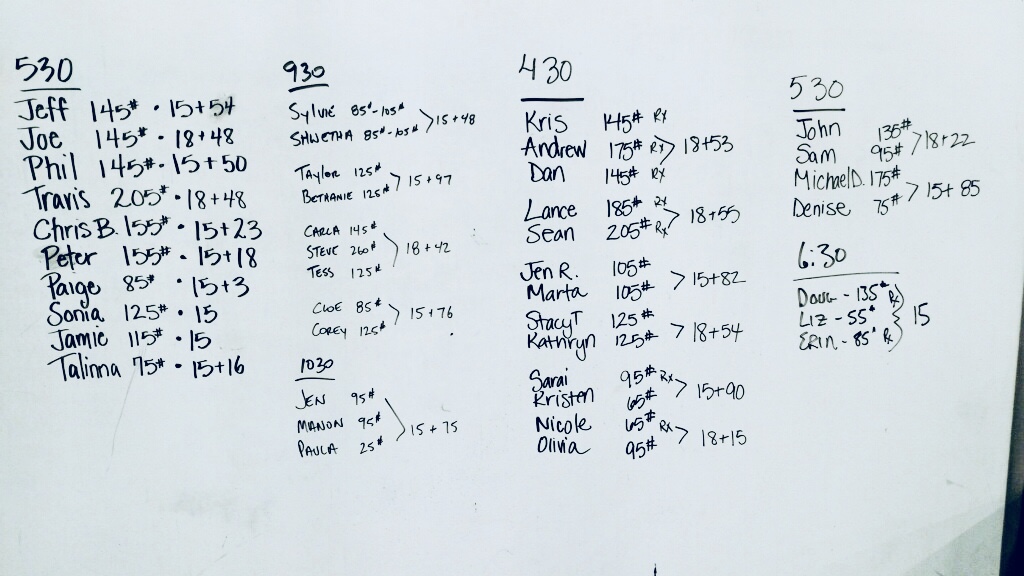 530
Jeff 145# • 15+54
Joe 145# • 18+48
Phil 145# • 15+50
Travis 205# • 18+48
Chris B. 155# • 15+23
Peter 155# • 15+18
Paige 85# • 15+3
Sonia 125# • 15
Jamie 115# • 15
Talinna 75# • 15+16
930
Sylvie 85#-105#
SHWETHA 85#-105# > 15+48
Taylor 125#
BETHANIE 125# > 15+97
CARLA 145#
STEVE 260# > 18+42
TESS 125#
CLOE 85#
COREY 125# > 15+76
1030
JEN 95#
MANON 95# > 15+75
PAULA 25#
430
Kris 145# Rx
Andrew 175# Rx > 18+53
Dan 145# Rx
Lance 185# Rx
Sean 205# Rx > 18+55
Jen R. 105#
Marta 105# > 15+82
Stacy T 125#
Kathryn 125# > 18+54
Sarai 95# Rx
Kristen 65# > 15+90
Nicole 65# Rx
Olivia 95# > 18+15
530
John 135#
Sam 95# > 18+22
Michael D. 175#
Denise 75# > 15+85
6:30
Doug - 135# Rx
Liz - 55# } 15
ERIN - 85# Rx